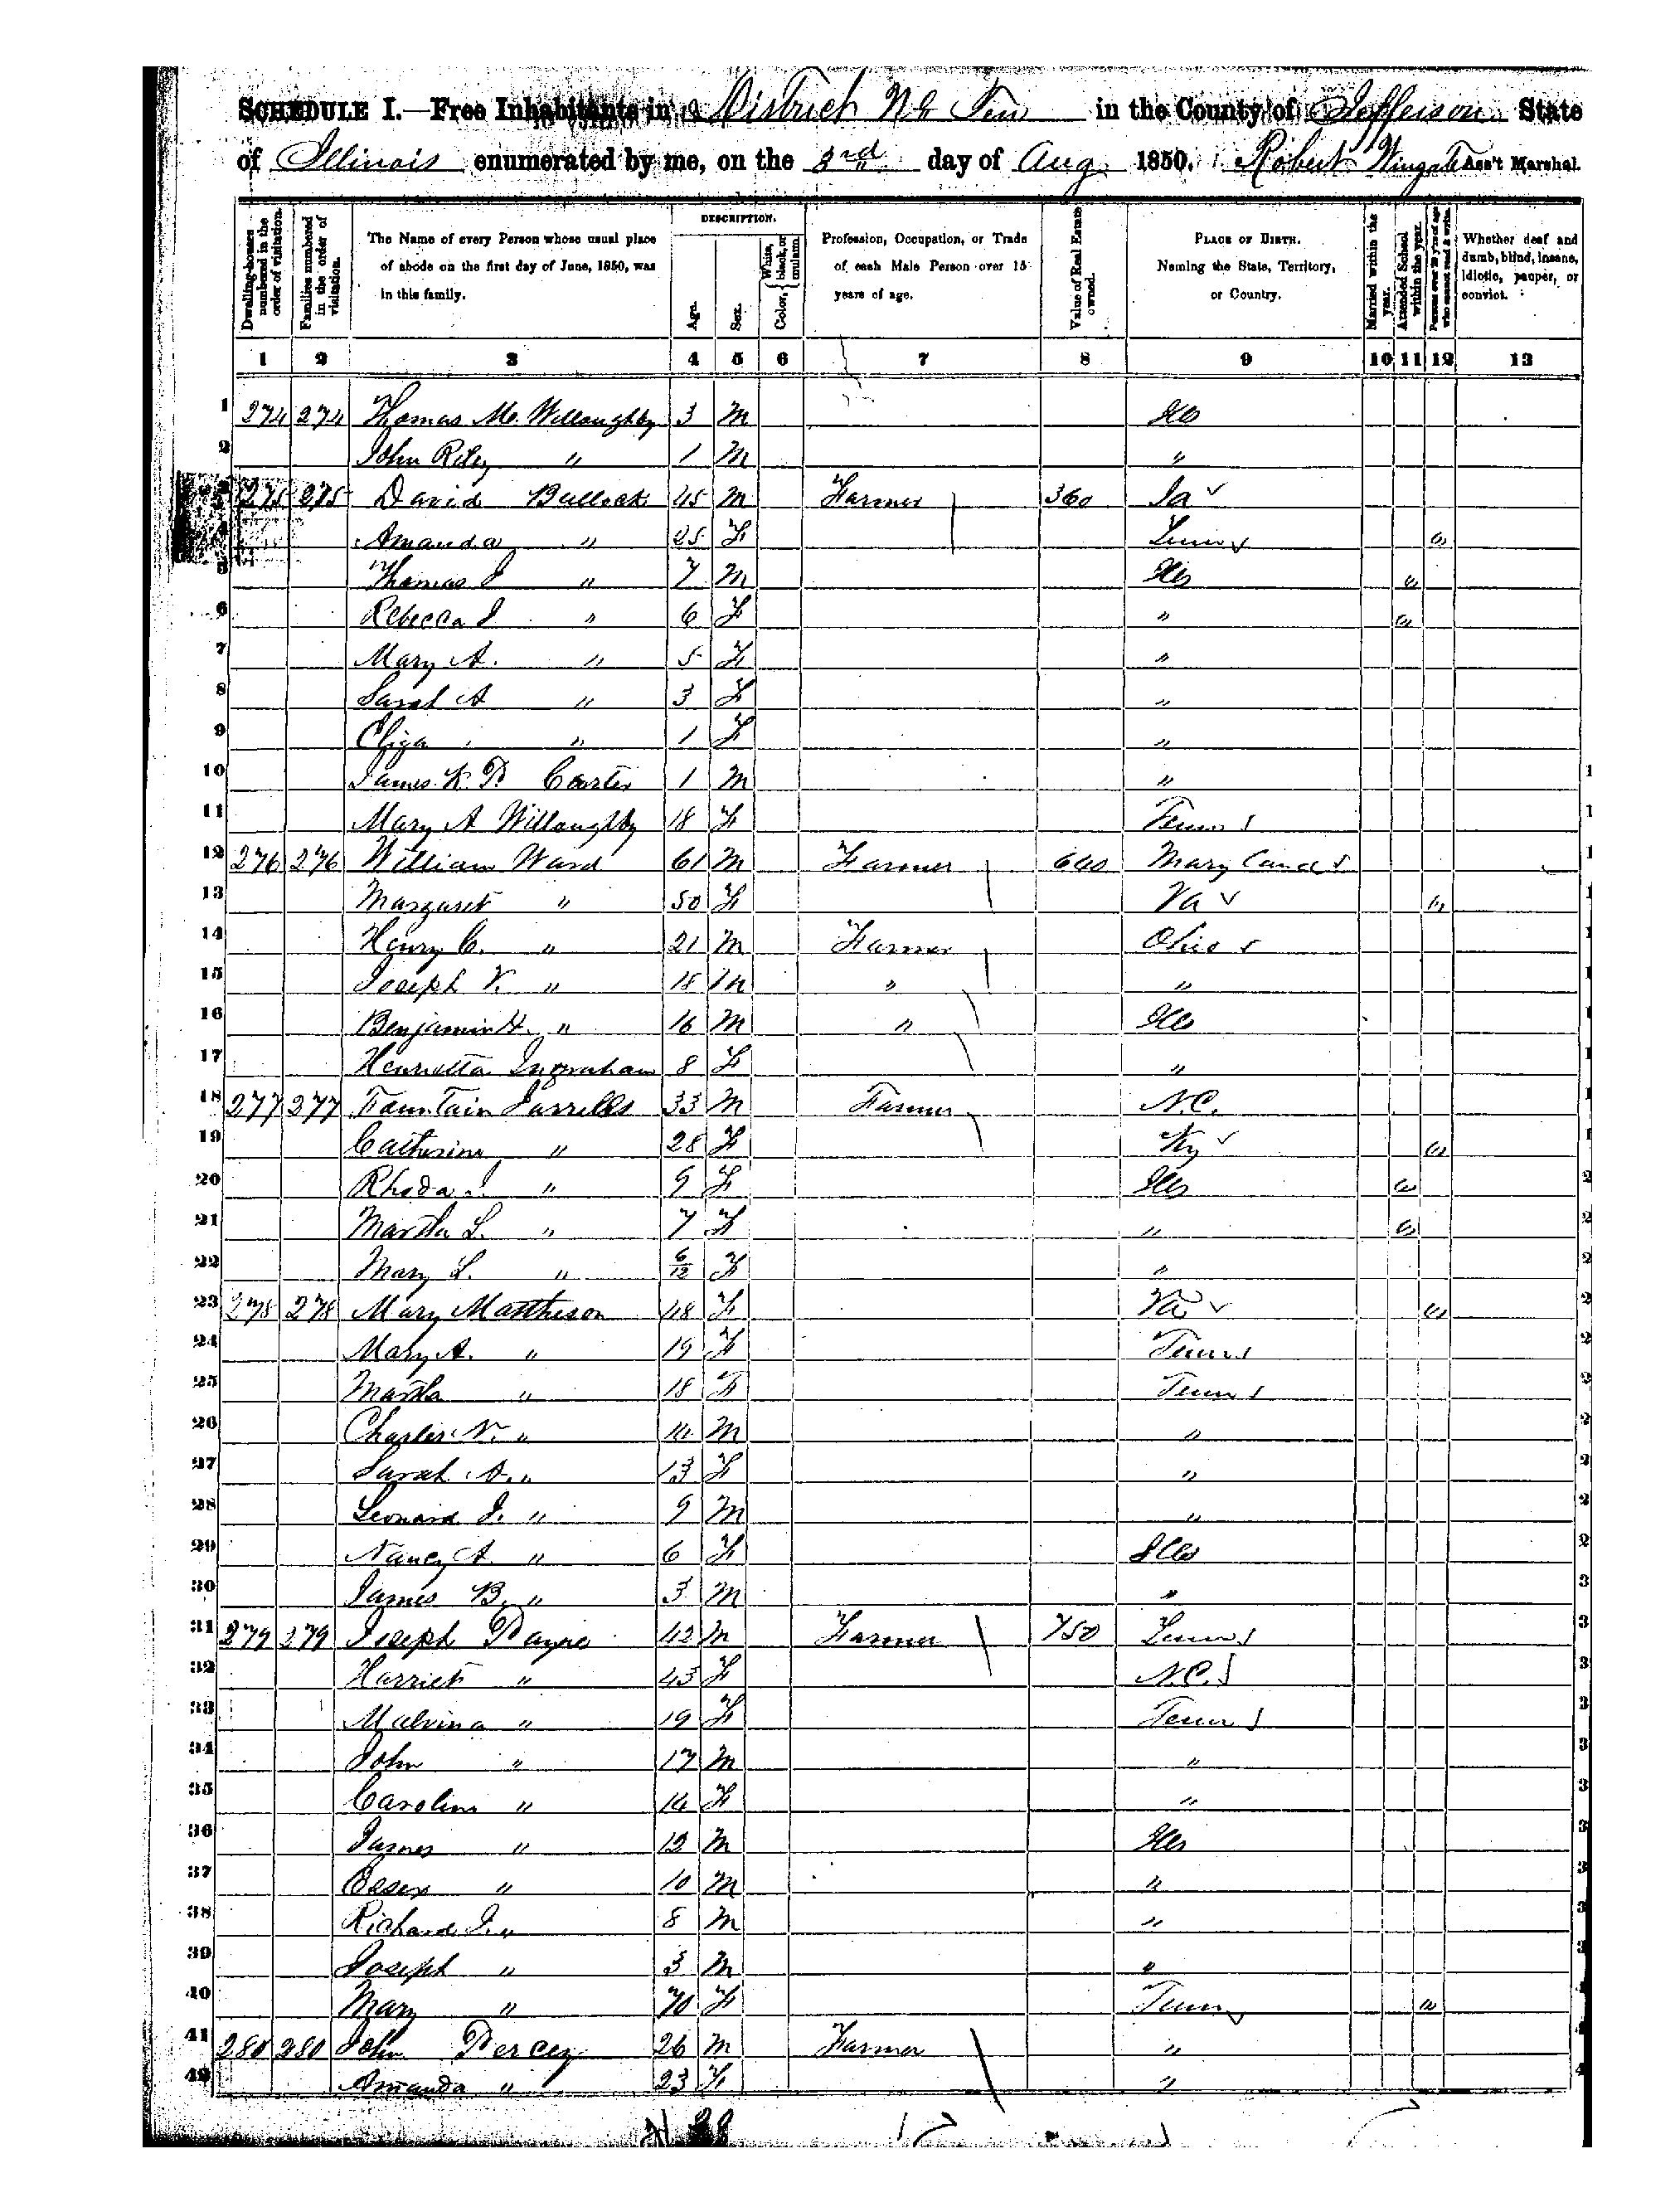 SCHEDULE I.—Free Inhabitants in District No Ten in the County of Jefferson State
of Illinois enumerated by me, on the 3rd day of Aug 1850. Robert Wingate Ass't Marshal.
Dwelling-houses numbered in the order of visitation.
Families numbered in the order of visitation.
The Name of every Person whose usual place of abode on the first day of June, 1850, was in this family.
DESCRIPTION.
Age.
Sex.
Color, { White, black, or mulatto.
Profession, Occupation, or Trade of each Male Person over 15 years of age.
Value of Real Estate owned.
PLACE OF BIRTH. Naming the State, Territory, or Country.
Married within the year.
Attended School within the year.
Persons over 20 y'rs of age who cannot read & write.
Whether deaf and dumb, blind, insane, idiotic, pauper, or convict.
1 2 3 4 5 6 7 8 9 10 11 12 13
1 274 274 Thomas Mc. Willoughby 3 M Ills
2 John Riley " 1 M "
3 275 275 David Bullock 45 M Farmer 360 Ia
4 Amanda " 25 F Tenn
5 Thomas J " 7 M Ills
6 Rebecca J " 6 F "
7 Mary A. " 5 F "
8 Sarah A " 3 F "
9 Eliza " 1 F "
10 James K. P. Carter 1 M "
11 Mary A Willoughby 18 F Tenn
12 276 276 William Ward 61 M Farmer 640 Mary Land
13 Margaret " 50 F Va
14 Henry C. " 21 M Farmer Ohio
15 Joseph V. " 18 M " "
16 Benjamin H. " 16 M " Ills
17 Henrietta Ingraham 8 F "
18 277 277 Fountain Jarrells 33 M Farmer N.C.
19 Catherine " 28 F Ky
20 Rhoda J. " 9 F Ills
21 Martha L. " 7 F "
22 Mary L. " 6/12 F "
23 278 278 Mary Mattheson 48 F Va
24 Mary A. " 19 F Tenn
25 Martha " 18 F Tenn
26 Charles N. " 14 M "
27 Sarah A. " 13 F "
28 Leonard J. " 9 M "
29 Nancy A. " 6 F Ills
30 James B. " 3 M "
31 279 279 Joseph Payne 42 M Farmer 750 Tenn
32 Harriet " 43 F N.C.
33 Malvina " 19 F Tenn
34 John " 17 M "
35 Caroline " 14 F "
36 James " 12 M Ills
37 Essex " 10 M "
38 Richard J. " 8 M "
39 Joseph " 3 M "
40 Mary " 70 F Tenn
41 280 280 John Percey 26 M Farmer "
42 Amanda " 23 F "